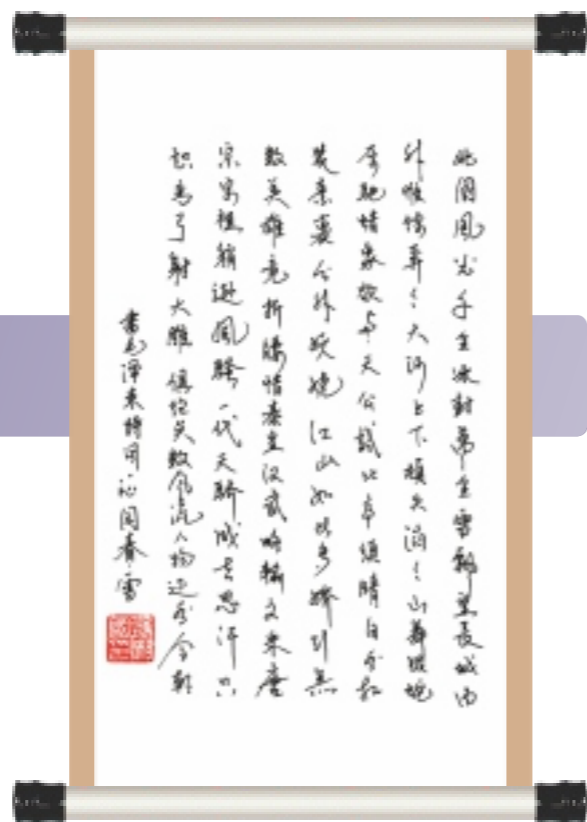 北國風光千里冰封萬里雪飄望長城内
外惟餘莽々大河上下頓失滔々山舞银蛇
原馳蜡象欲与天公試比高須晴日看紅
裝素裹分外妖嬈江山如此多嬌引無
數英雄竞折腰惜秦皇汉武略輸文采唐
宗宋祖稍逊風騷一代天驕成吉思汗只
识弯弓射大雕俱往矣數风流人物还看今朝
書毛泽東詩词沁园春雪